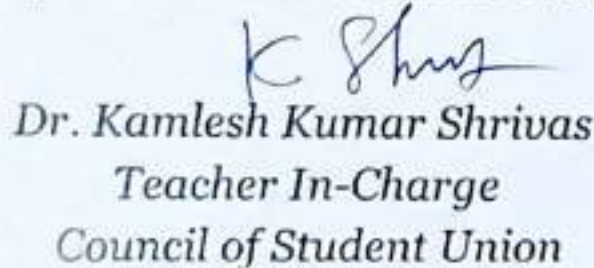 K Shrus
Dr. Kamlesh Kumar Shrivas
Teacher In-Charge
Council of Student Union